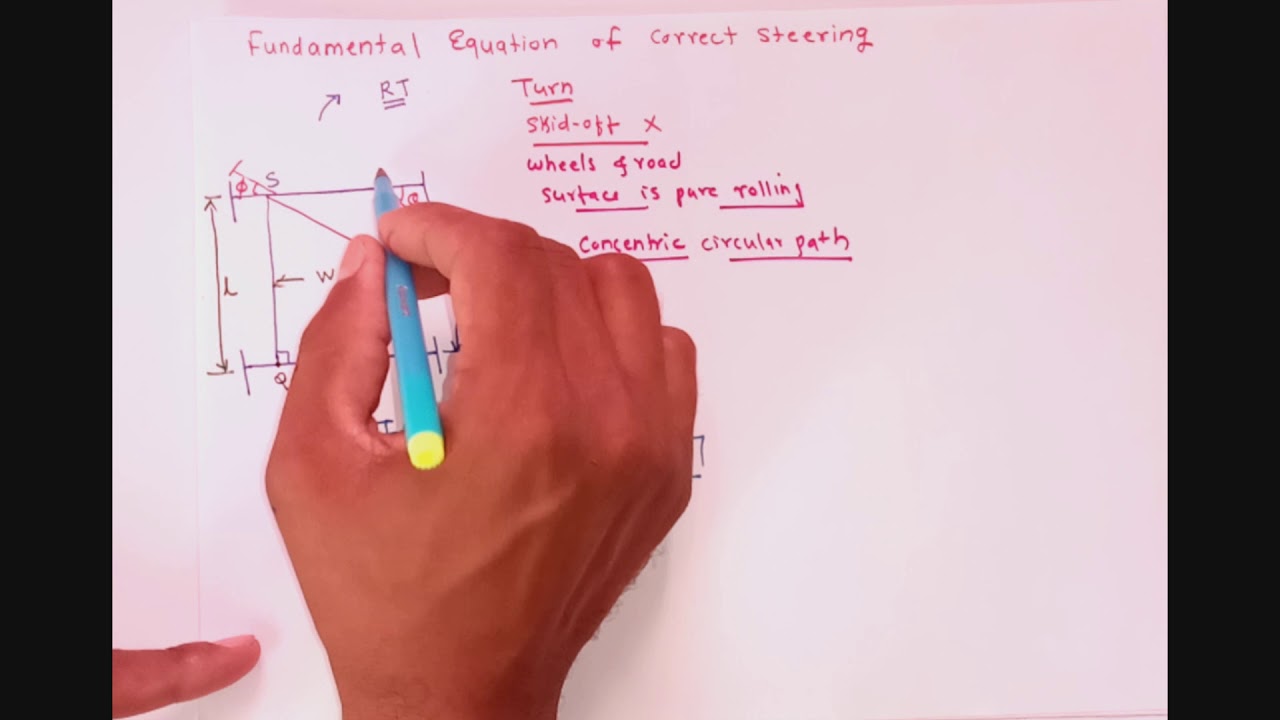 Fundamental Equation of correct steering
RT
Turn
Skid-off X
wheels & road
surface is pure rolling
concentric circular path
φ
S
θ
l
W
Q
I